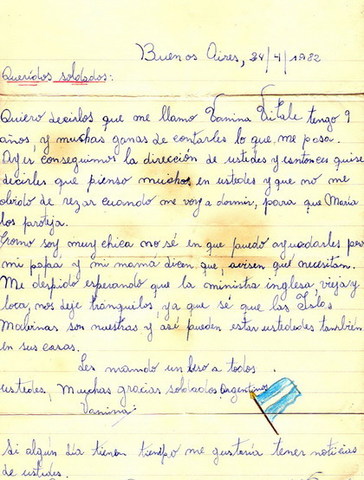 Buenos Aires, 24/4/1982
Queridos soldados:
Quiero decirlos que me llamo Vanina Vitale tengo 9
años, y muchas ganas de contarles lo que me pasa.
Ayer conseguimos la dirección de ustedes y entonces quise
decirles que pienso mucho en ustedes y que no me
olvido de rezar cuando me voy a dormir, para que María
los proteja.
Como soy muy chica no sé en que puedo ayudarles pero
mi papá y mi mamá dicen que, avisen que necesitan.
Me despido esperando que la ministra inglesa, vieja y
loca, nos deje tranquilos, ya que sé que las Islas
Malvinas son nuestras y así pueden estar ustedes también
en sus casas.
Les mando un beso a todos
ustedes, Muchas gracias soldados Argentinos
Vanina
Si algún día tienen tiempo me gustaría tener noticias
de ustedes.